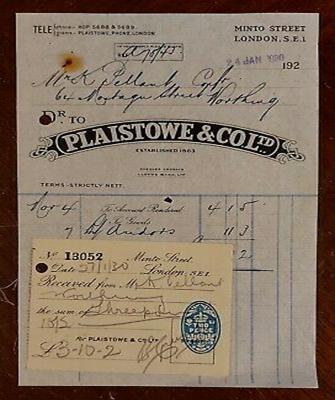 TELE phone:- HOP. 5688 & 5689.
grams:- PLAISTOWE, PHONE, LONDON.
MINTO STREET
LONDON, S.E.1
24 JAN 1930 192
Mr K Pellant
64 Montague Street, Worthing
DR. TO
PLAISTOWE & CO LTD
ESTABLISHED 1863
LLOYDS BANK LTD
TERMS:- STRICTLY NETT.
Nov 4 To Account Rendered 4 1 5
7 To Goods
2
No 13052 Minto Street
Date 27/1/30 London, S.E.1
Received from Mr K Pellant
Worthing
the sum of Three
10/2
for PLAISTOWE & CO LTD
£3-10-2
TWO
PENCE